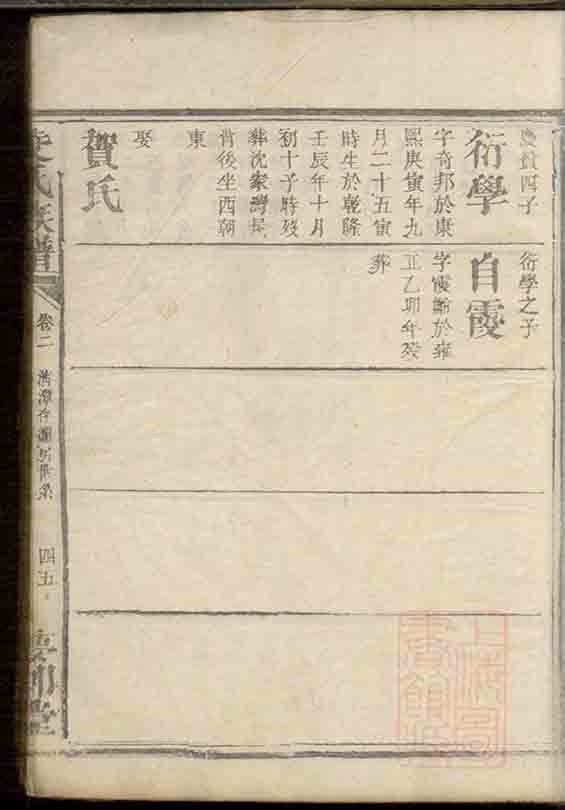 慶積四子
衍學
字奇邦於康
熙庚寅年九
月二十五寅
時生於乾隆
壬辰年十月
初十子時殁
葬沈家灣長
背後坐西朝
東
娶
賀氏
衍學之子
自霞
字霞齡於雍
正乙卯年殁
葬
氏族譜
卷二
四五
上海圖書館藏